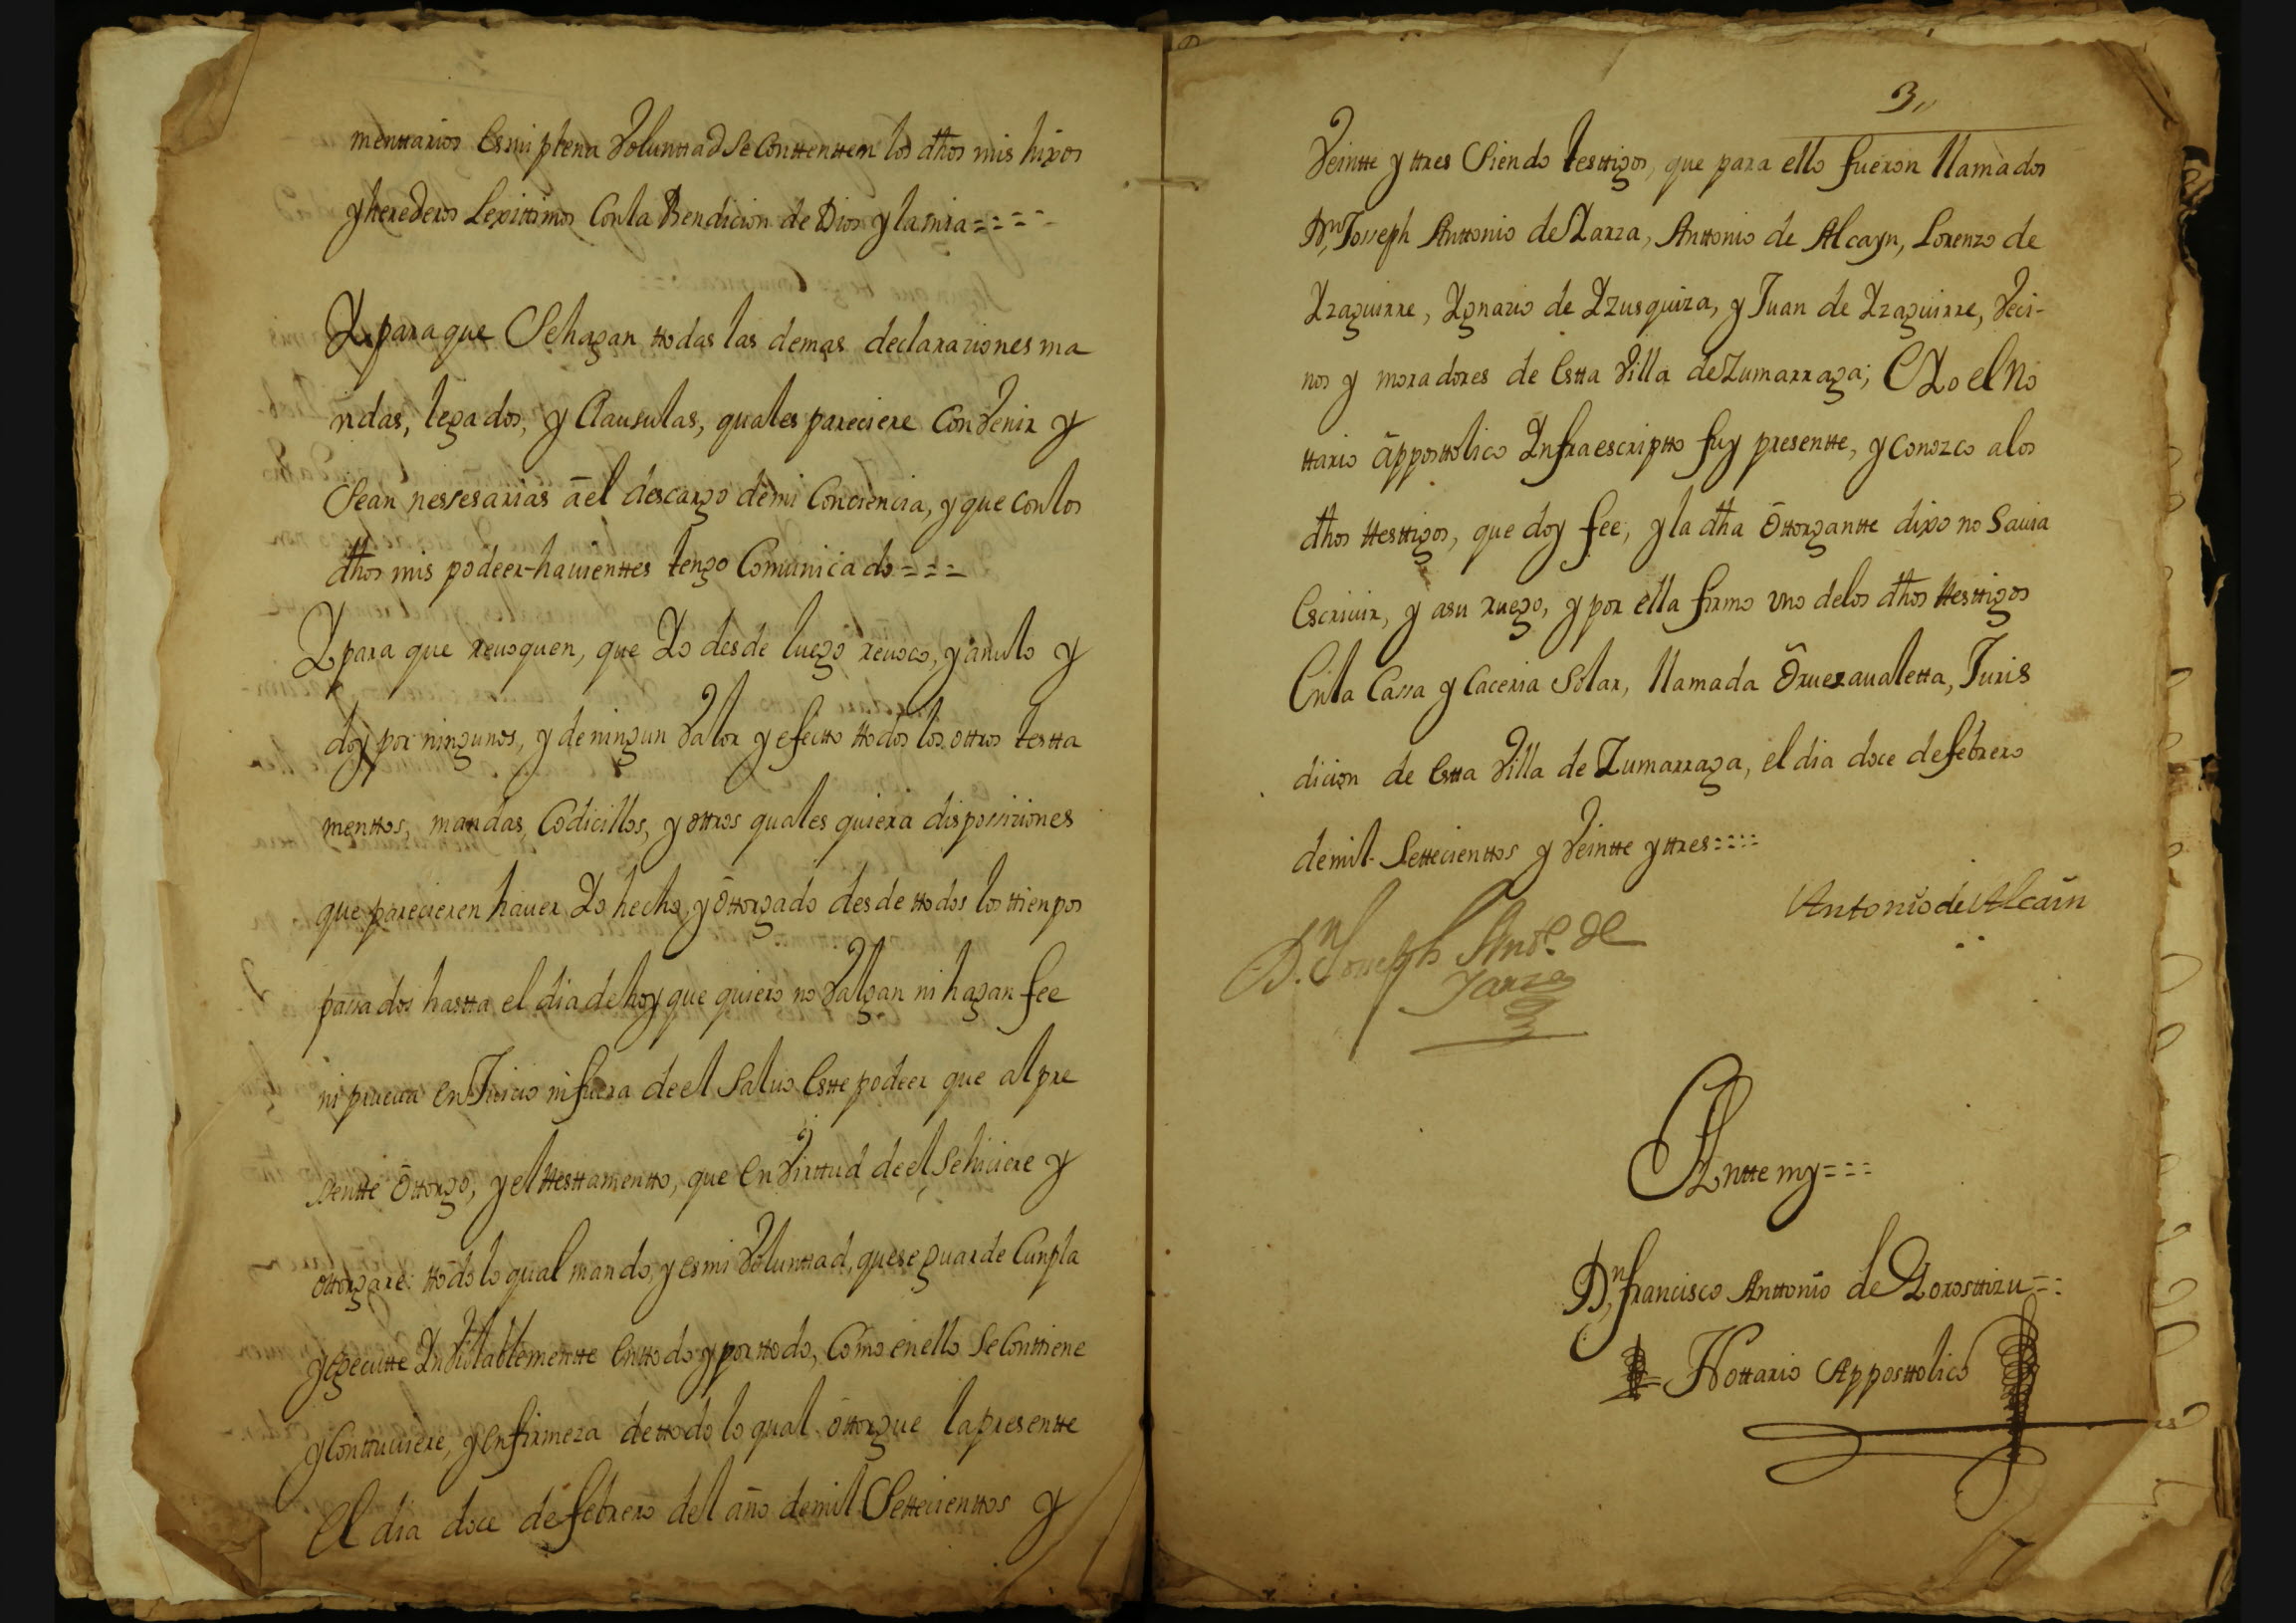 menttarios Es mi plena Volunttad Se Conttentten los dhos mis hixos
y herederos Lexittimos Con la Bendicion de Dios y la mia = = = =
Y para que Se hagan ttodas las demas declaraziones ma
ndas, legados, y Clausulas, quales pareciere Convenir y
Sean nessesarias ã el descargo de mi Conciencia, y que con los
dhos mis podeer-hauienttes tengo Comunicado = = =
Y para que reuoquen, que Yo desde luego reuoco, y anulo y
doy por ningunos, y de ningun Valor y efectto ttodos los ottros testta
menttos, mandas, Codicillos, y ottros quales quiera dispossiziones
que parecieren hauer Yo hecho, y õttorgado desde ttodos los ttienpos
passados hastta el dia de hoy que quiero no Valgan ni hagan fee
ni prueua en Juicio ni fuera de el Saluo Estte podeer que al pre
sentte õttorgo, y el ttesttamentto, que en Virttud de el Se hiciere y
ottorgare: ttodo lo qual mando, y es mi Voluntad, que se guarde Cunpla
y egecutte Ynviolablementte en ttodo y por ttodo, Como en ello Se Conttiene
y Conttuuiere, y en firmeza de ttodo lo qual õttorgue la presentte
El dia doce de febrero del año de mil Settecienttos y
3,,
Veintte y ttres Siendo testtigos, que para ello fueron llamados
Dn, Josseph Anttonio de Yarza, Anttonio de Alcayn, Lorenzo de
Yzaguirre, Ygnazio de Yzusquiza, y Juan de Yzaguirre, Veci-
nos y moradores de Estta Villa de Zumarraga; E Yo el No
ttario ãpposttolico Ynfraescriptto fuy presentte, y Conozco a los
dhos ttesttigos, que doy fee, y la dha õttorgantte dixo no Sauia
Escriuir, y a su ruego, y por ella firmo uno de los dhos ttesttigos
En la Cassa y Caceria Solar, llamada õruezaualetta, Juris
dicion de Estta Villa de Zumarraga, el dia doce de febrero
de mil Settecienttos y Veintte y ttres ::::
Antonio de Alcain
D.n Josseph Antto. de
Yarza
Antte my = = =
Dn, francisco Anttonio de Yorosttizu = :
Nottario Apposttolico